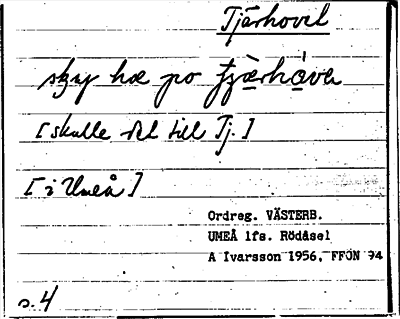 Tjärhovel
po
[skulle till Tj.]
[i Umeå]
Ordreg. VÄSTERB.
UMEÅ lfs. Rödåsel
A Ivarsson 1956, FFÖN 94
s. 4